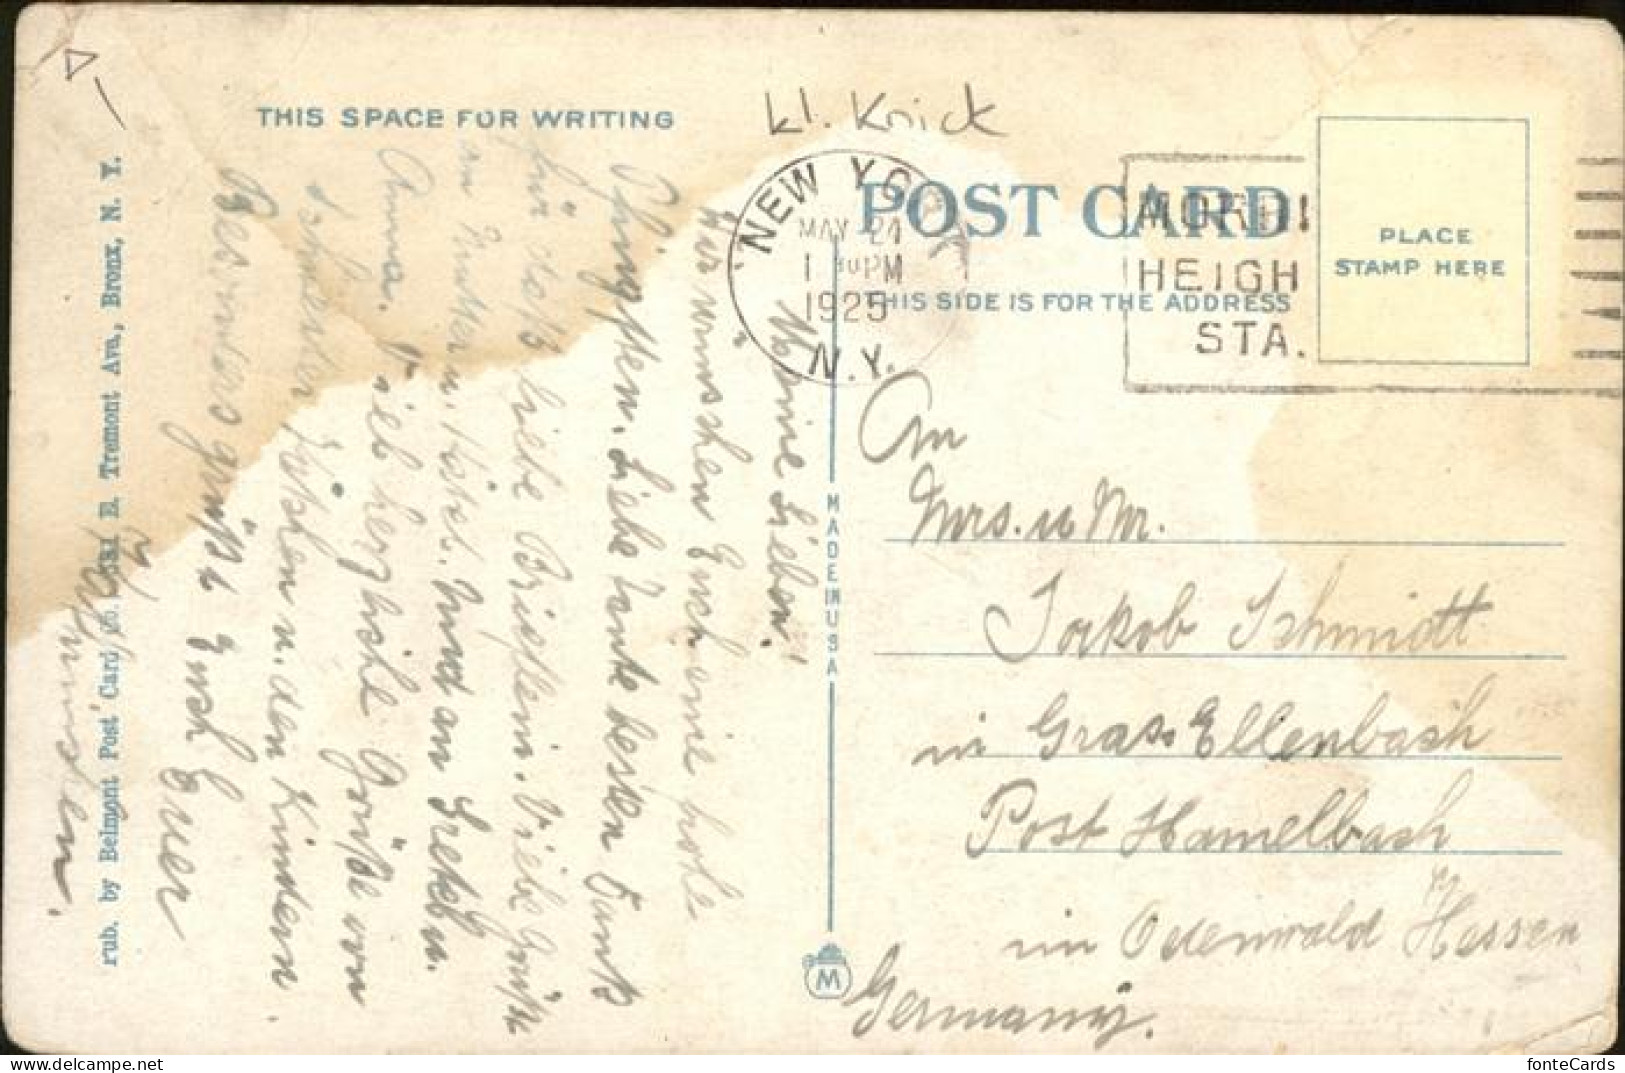 kl. Knick
THIS SPACE FOR WRITING
POST CARD
THIS SIDE IS FOR THE ADDRESS
PLACE
STAMP HERE
NEW YORK
MAY 24
1 30PM
1925
N.Y.
MORRI
HEIGH
STA.
Meine Lieben!
Wir wünschen Euch eine frohe
Pfingsten. Liebe Tante besten Dank
für das liebe Brieflein. Viele Grüße
an Mutter u. Und an Gretchen
Anna. Viel herzliche Grüße von
Schwester u. den Kindern
Besonders grüßt Euch Euer
MADE IN USA
M
An
Mrs. u Mr.
Jakob Schmidt
in Grass Ellenbach
Post Hamelbach
im Odenwald Hessen
Germany.
Pub. by Belmont Post Card Co. E. Tremont Ave, Bronx, N. Y.
www.delcampe.net
fonteCards